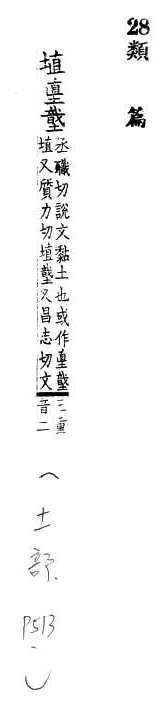 28類篇
埴
丞職切說文黏土也或作
埴又質力切埴又昌志切文
三重
音二
(土部 P513)